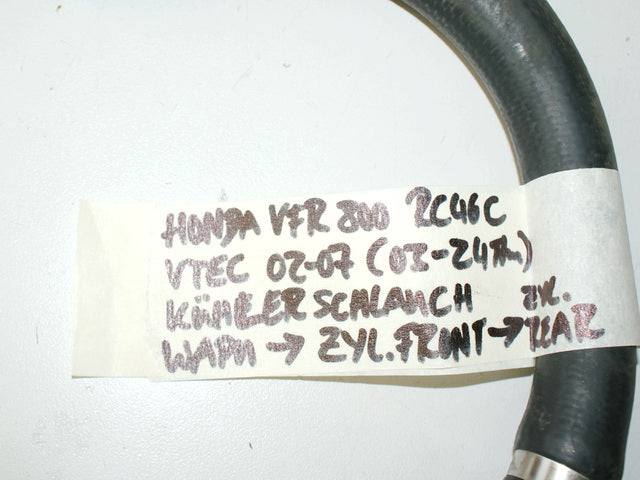 HONDA VFR 800 RC46C
VTEC 02-07 (03-24Tkm)
KÜHLERSCHLAUCH ZYL.
WAPU → ZYL.FRONT → REAR